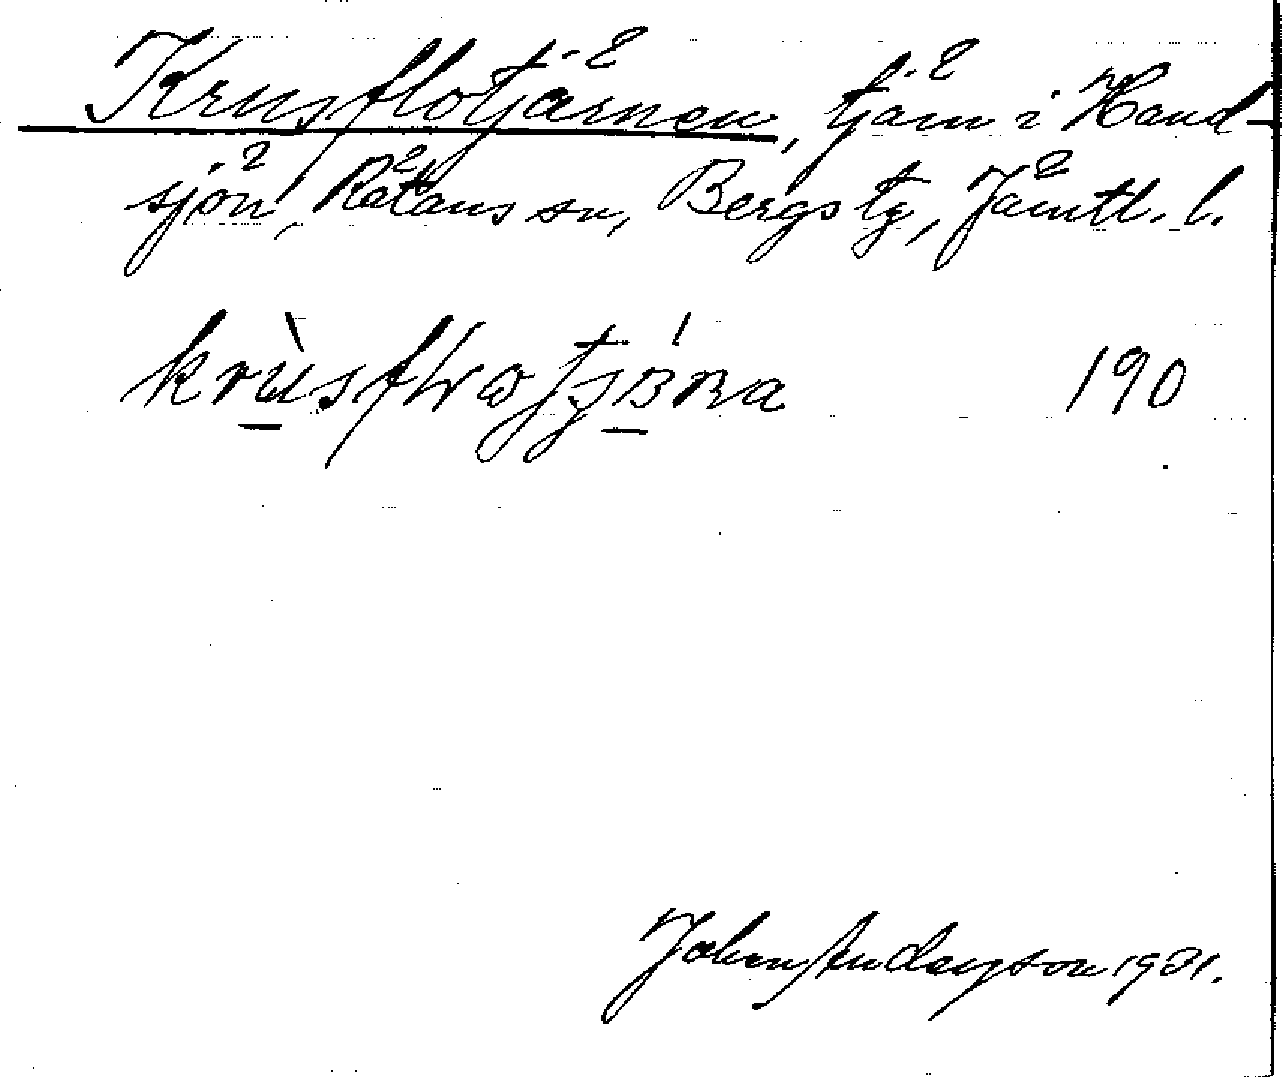 Krusflotjärnen, tjärn i Hand-
sjön, Rätans sn, Bergs tg, Jämtl. l.
190
John Anderson 1931.